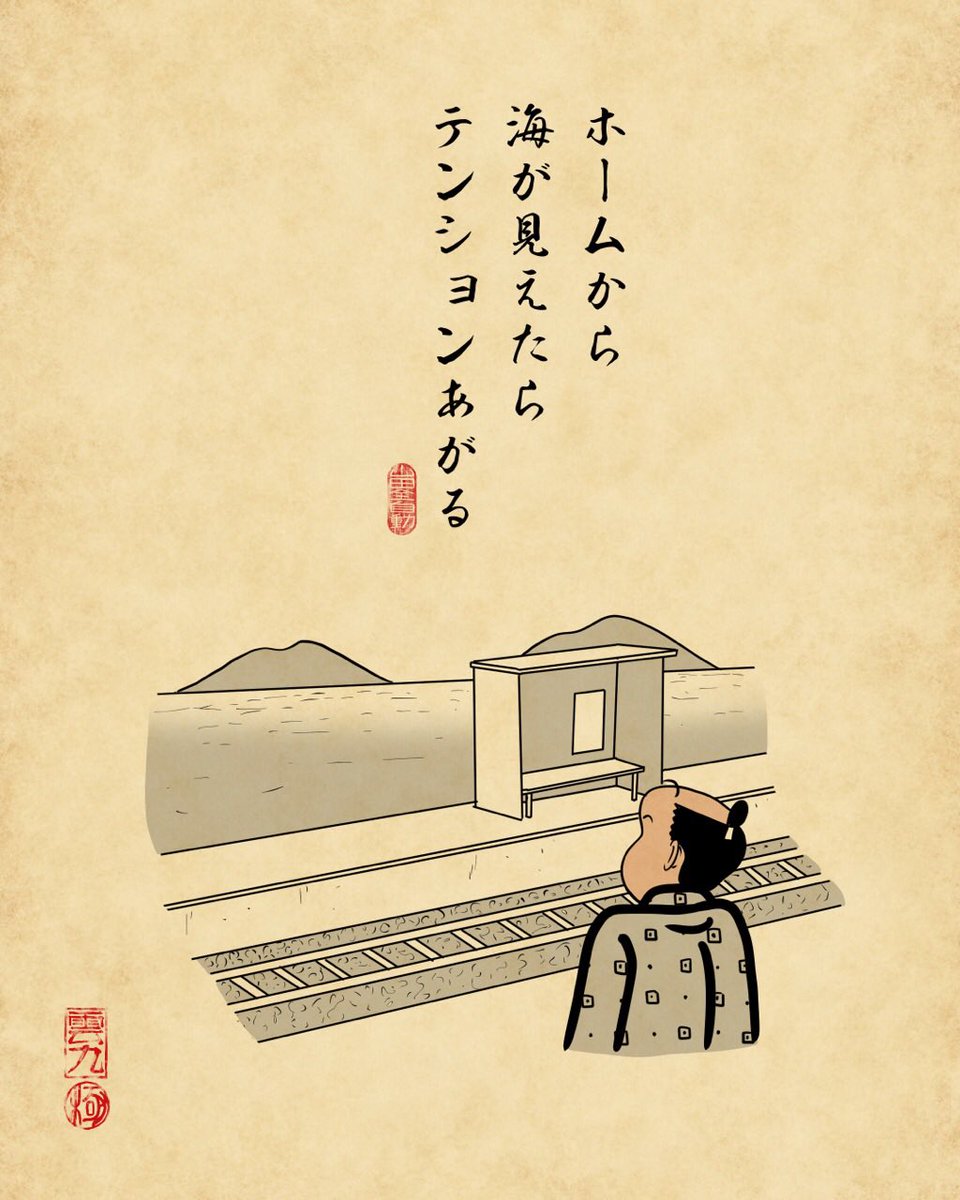 ホームから
海が見えたら
テンションあがる